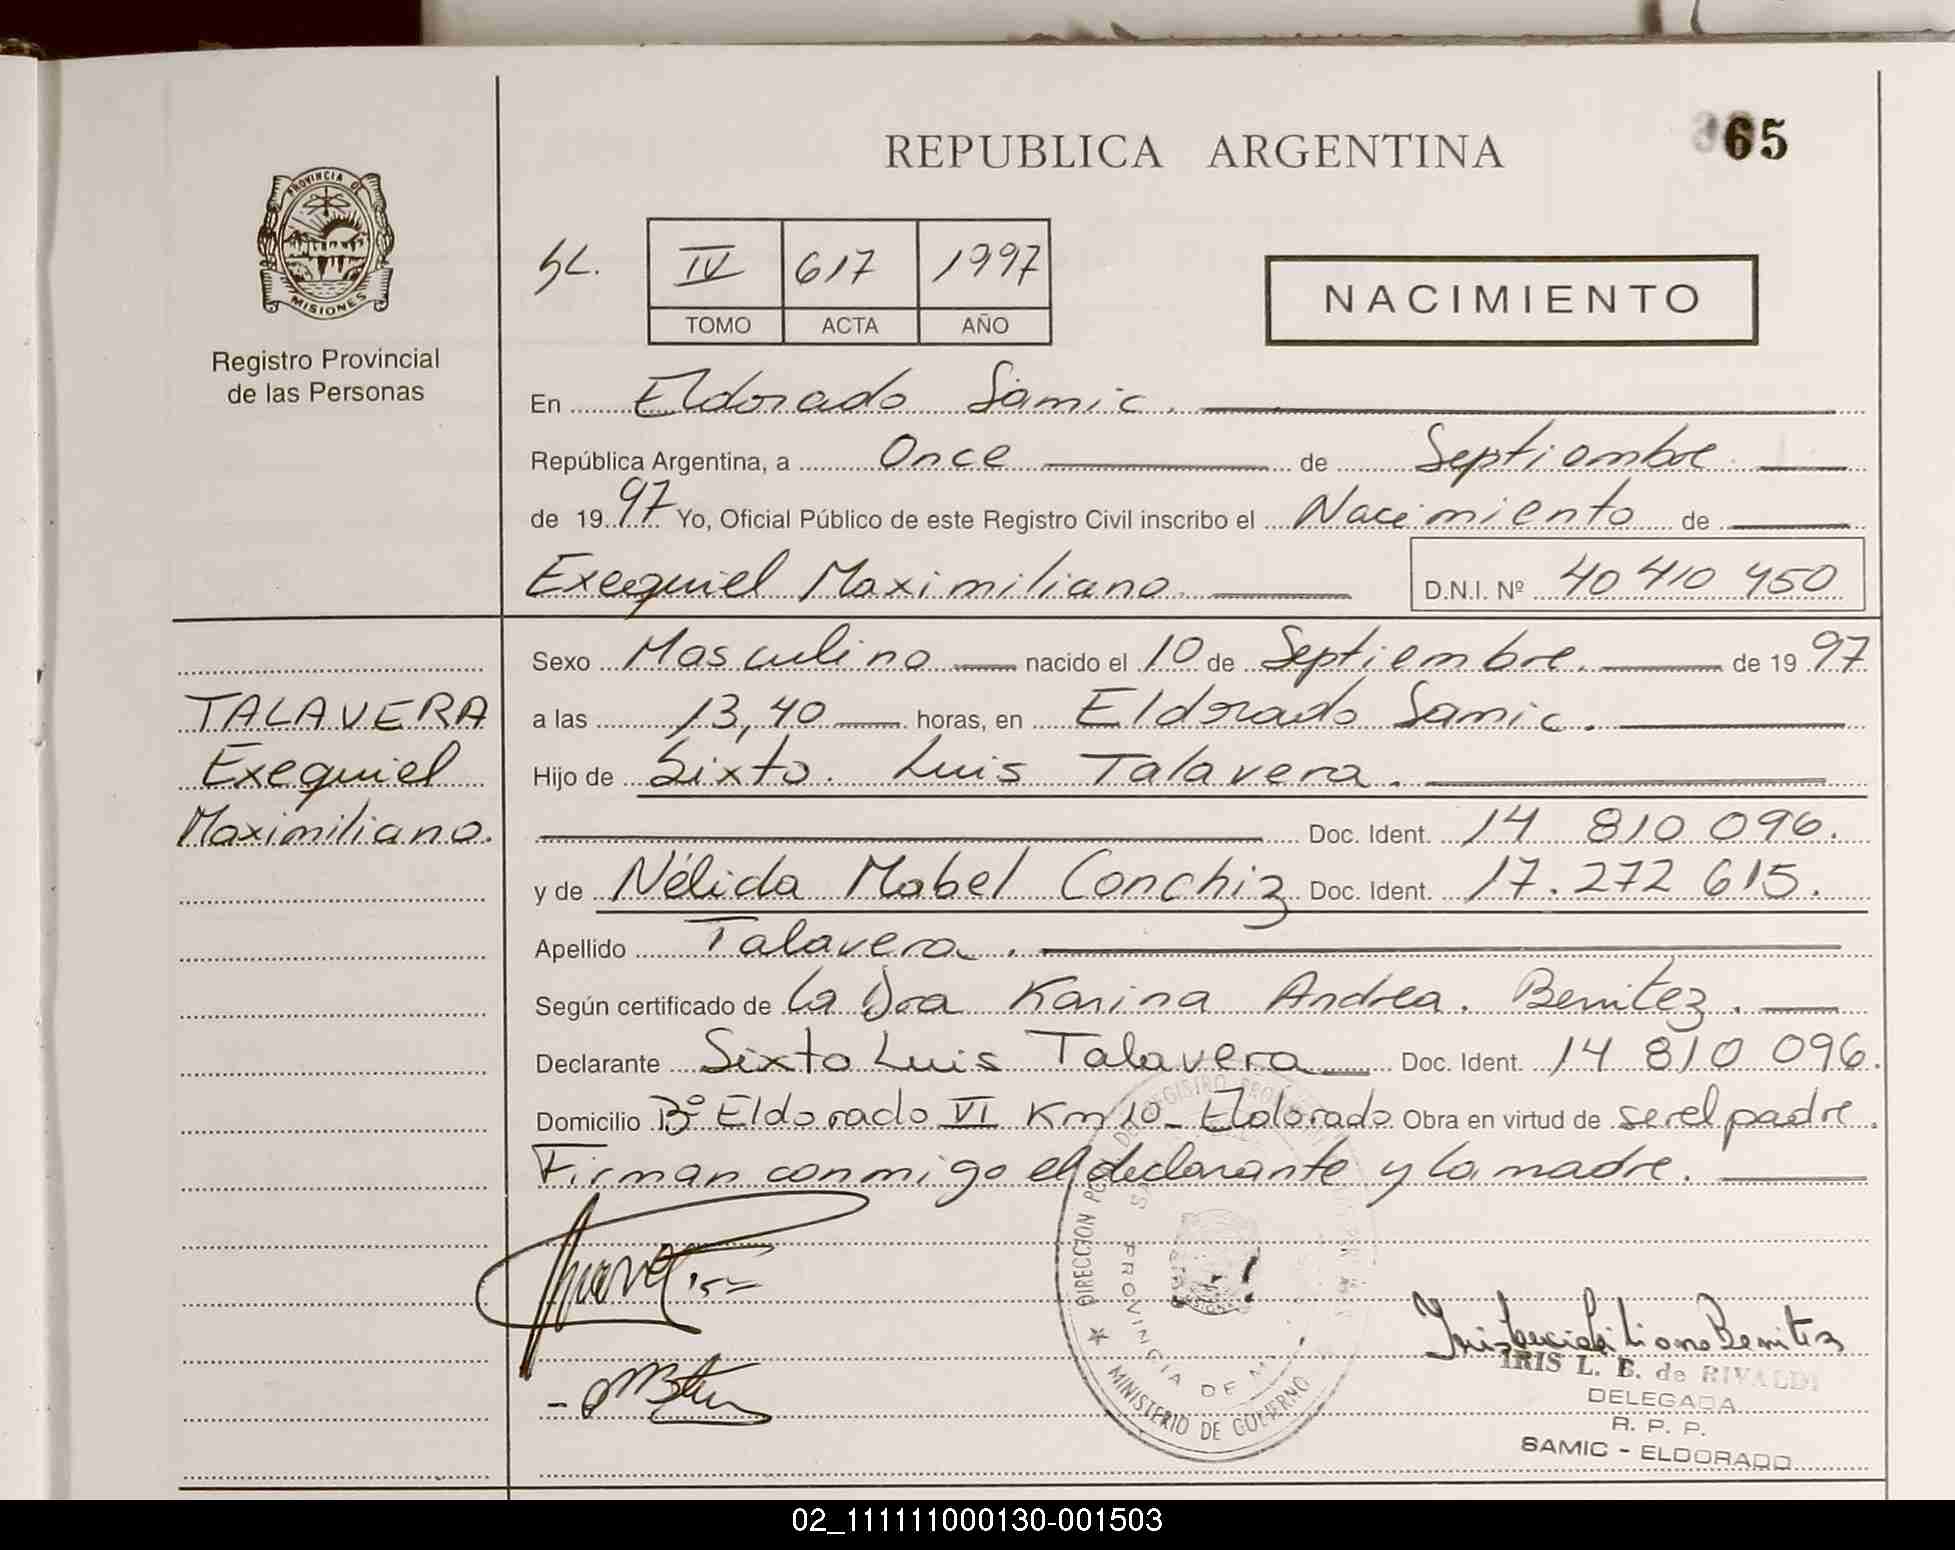 REPUBLICA ARGENTINA
65
PROVINCIA DE
MISIONES
Registro Provincial
de las Personas
IV 617 1997
TOMO ACTA AÑO
NACIMIENTO
En Eldorado Samic.
República Argentina, a Once de Septiembre
de 1997 Yo, Oficial Público de este Registro Civil inscribo el Nacimiento de
Exequiel Maximiliano. D.N.I. Nº 40 410 450
Sexo Masculino nacido el 10 de Septiembre. de 1997
TALAVERA
a las 13,40 horas, en Eldorado Samic.
Exequiel
Hijo de Sixto. Luis Talavera.
Maximiliano.
Doc. Ident. 14 810 096.
y de Nélida Mabel Conchiz Doc. Ident. 17.272 615.
Apellido Talavera.
Según certificado de la Dra Karina Andrea. Benitez.
Declarante Sixto Luis Talavera Doc. Ident. 14 810 096.
Domicilio Bº Eldorado VI Km 10_ Eldorado. Obra en virtud de ser el padre.
Firman conmigo el declarante y la madre.
PROVINCIA DE
MINISTERIO DE GOBIERNO
IRIS L. B. de RIVALDI
DELEGADA
R. P. P.
SAMIC - ELDORADO
02_111111000130-001503